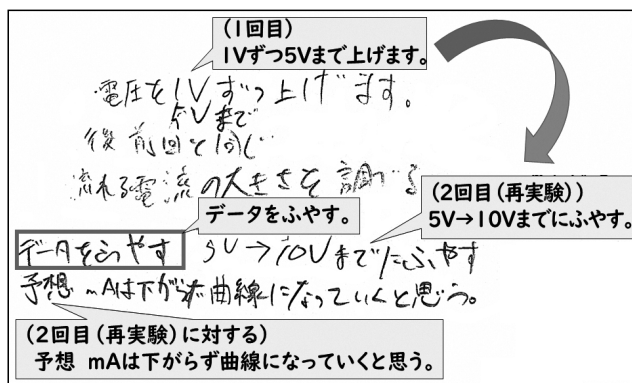 (1回目)
1Vずつ5Vまで上げます。
電圧を1Vずつ上げます。
5Vまで
後前回と同じ
流れる電流の大きさを調べる
データをふやす。
(2回目(再実験))
5V→10Vまでにふやす。
データをふやす 5V→10Vまでにふやす
予想 mAは下がらず曲線になっていくと思う。
(2回目(再実験)に対する)
予想 mAは下がらず曲線になっていくと思う。